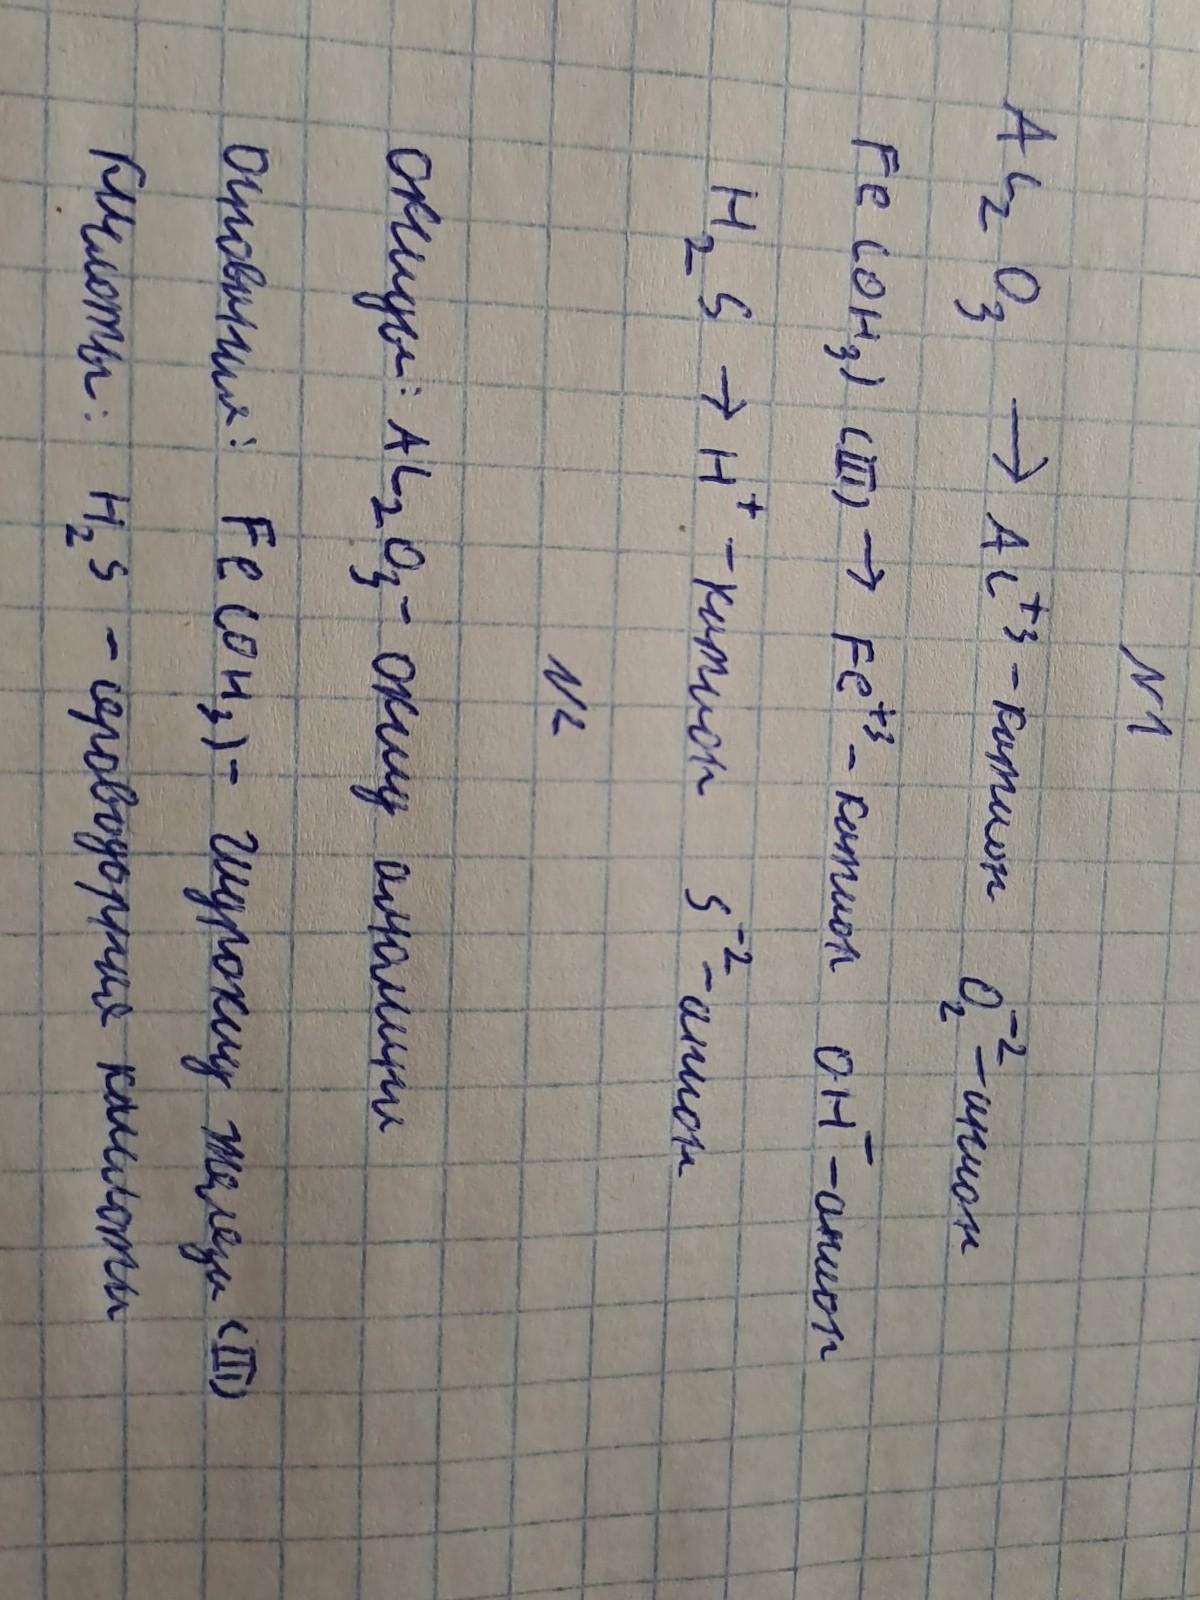 N1
Al₂O₃ → Al⁺³ - катион O₂⁻² - анион
Fe(OH₃) (III) → Fe⁺³ - катион OH⁻ - анион
H₂S → H⁺ - катион S⁻² - анион
N2
Оксиды: Al₂O₃ - оксид алюминия
Основания: Fe(OH₃) - Гидроксид железа (III)
Кислоты: H₂S - сероводородная кислота